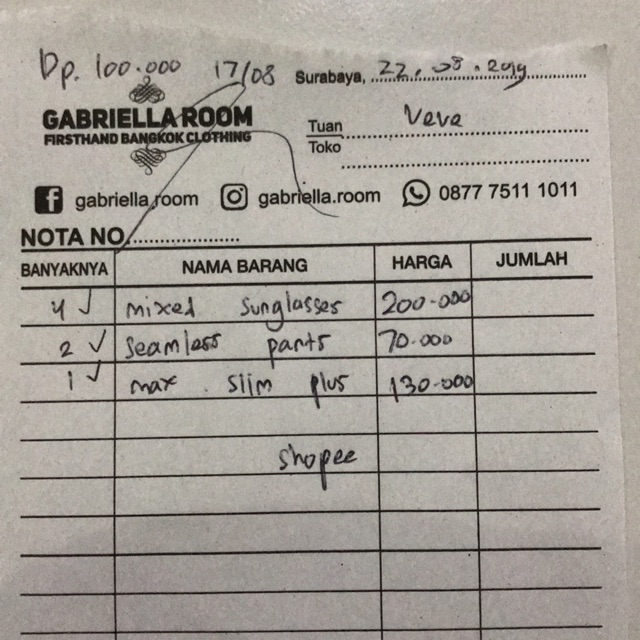 Dp. 100.000 17/08
Surabaya, 22.08.2019
GABRIELLA ROOM
FIRSTHAND BANGKOK CLOTHING
Tuan Veve
Toko
gabriella.room gabriella.room 0877 7511 1011
NOTA NO.
BANYAKNYA NAMA BARANG HARGA JUMLAH
4 mixed sunglasses 200.000
2 seamless pants 70.000
1 max slim plus 130.000
shopee